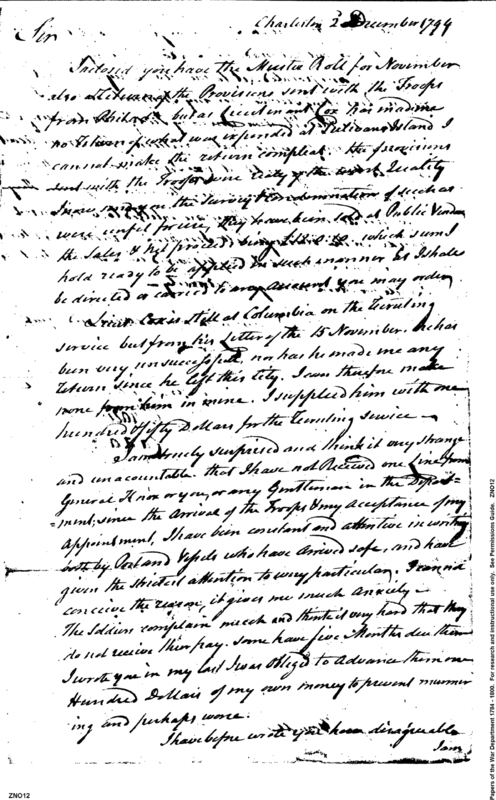 Charleston 2 December 1794
Sir
Inclosed you have the Muster Roll for November
also a Return of the Provisions sent with the Troops
from but as Lieutenant Cox has made me
no Return of what was expended at Island I
cannot make the return compleat. the provisions
sent with the Troops were of the worst Quality
I now send you the Survey & Condemnation of such as
were unfit for use, they have been sold at Public Vendue
the Sales & Net proceeds being which sum I
hold ready to be applied in such manner as I shall
be directed or carried to any Account you may order
Lieut Cox is Still at Columbia on the Recruiting
service but from his Letter of the 15 November. he has
been very unsuccessful, nor has he made me any
return since he left this City. I can therefore make
none from him in mine. I supplied him with one
hundred & fifty Dollars for the Recruiting Service —
I am truely surprised and think it very strange
and unaccountable that I have not Received one Line from
General Knox or you, or any Gentleman in the Depart=
=ment, since the Arrival of the Troops & my Acceptance of my
Appointment, I have been constant and attentive in writing
both by Post and Vessels who have arrived safe, and have
given the strictest attention to every particular. I cannot
conceive the reason, it gives me much anxiety —
The Soldiers complain much and think it very hard that they
do not receive their pay. some have five Months due them
I wrote you in my last I was Obliged to Advance them one
Hundred Dollars of my own money to prevent murmur
ing and perhaps worse.
I have before wrote you how disagreeable
I am
ZNO12
Papers of the War Department 1784 - 1800. For research and instructional use only. See Permissions Guide. ZNO12